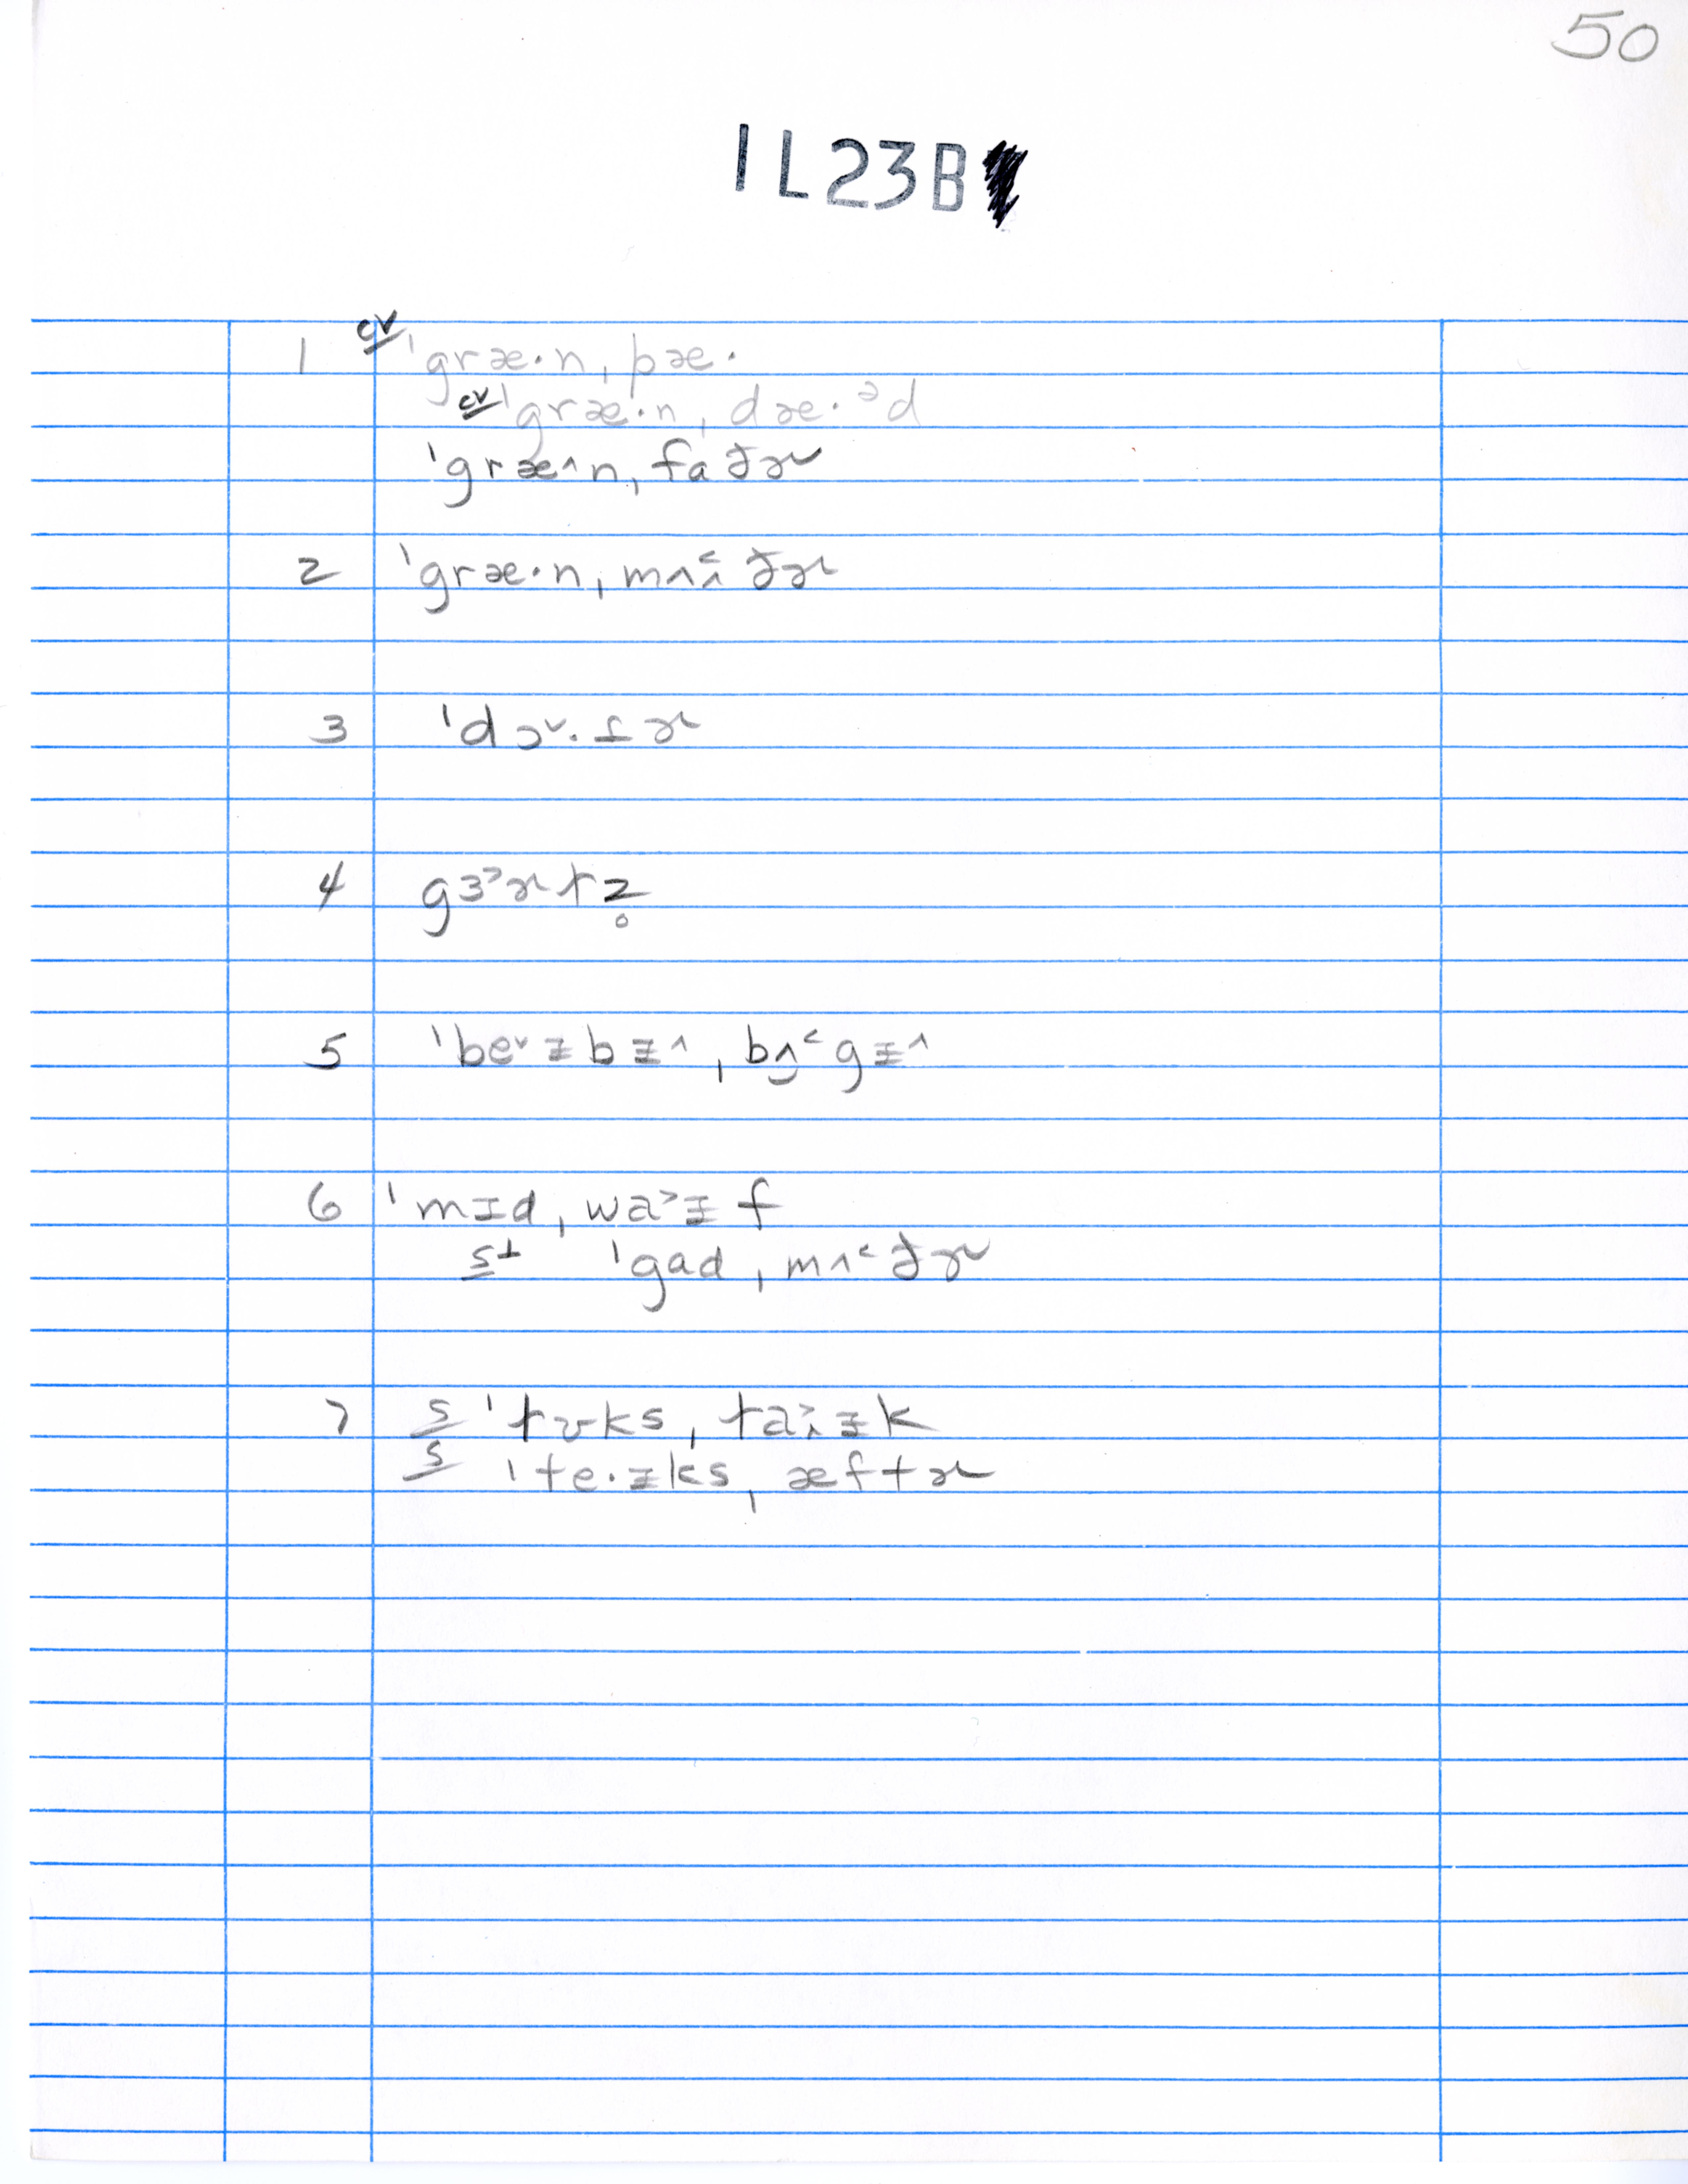 50
1L23B
1 cv ˈgræ·n ˌpæ·
cv ˈgræ·n ˌdæ·ᵊd
ˈgræ˄n ˌfɑðɚ
2 ˈgræ·n ˌmʌ˂ðɚ
3 ˈdɔ˅·ɾɚ
4 gɜ˃ɚɫz̥
5 ˈbe˅ɪbɪ˄ ˌbʌ̯˂gɪ˄
6 ˈmɪd ˌwa˃ɪf
st ˈgɑd ˌmʌ˂ðɚ
7 s ˈtʊks ˌta˃ɪk
s ˈte·ɪks ˌæftɚ